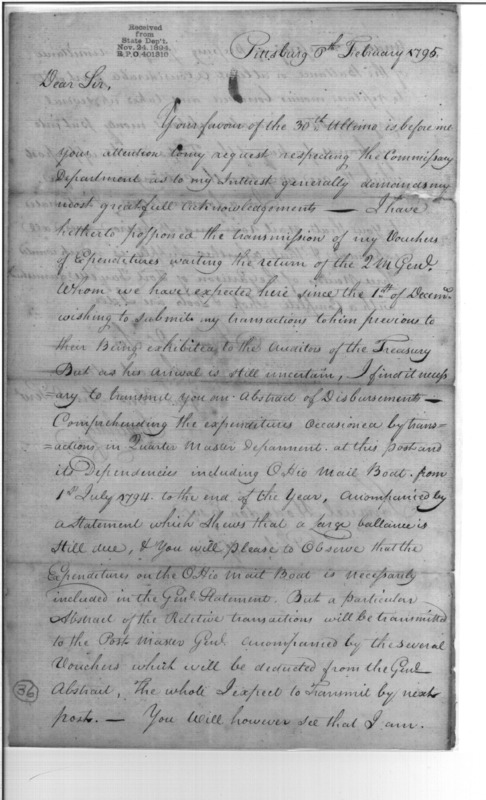 Received
from
State Dep't.
Nov. 24, 1894,
R.P.O. 401310
Pittsburg 6th February 1795.
Dear Sir,
Your favour of the 30th Ultimo is before me
your attention to my request respecting the Commissary
Department as to my Intrest generally demands my
most greatfull acknowledgments — I have
hitherto posponed the transmission of my Vouchers
of Expenditures waiting the return of the 2 M Genl.
Whom we have expected here since the 1st of Decemr.
wishing to submit my transactions to him previous to
their Being exhibited to the Auditors of the Treasury
But as his arival is still uncertain, I find it necess
=ary to transmit you an Abstract of Disbursements —
Comprehending the expenditures occasioned by trans=
=actions in Quarter Master Deparment at this post and
its Dependencies including O Hio Mail Boat from
1st July 1794 to the end of the Year, accompanied by
a Statement which shews that a large ballance is
Still due, & You will please to Observe that the
Expenditures on the O Hio Mail Boat is necessarily
included in the Genl. Statement. But a particular
Abstract of the Reletive transactions will be transmitted
to the Post Master Genl accompanied by the several
Vouchers which will be deducted from the Genl
Abstract, The whole I expect to Transmit by next
post. — You Will however see that I am.
36